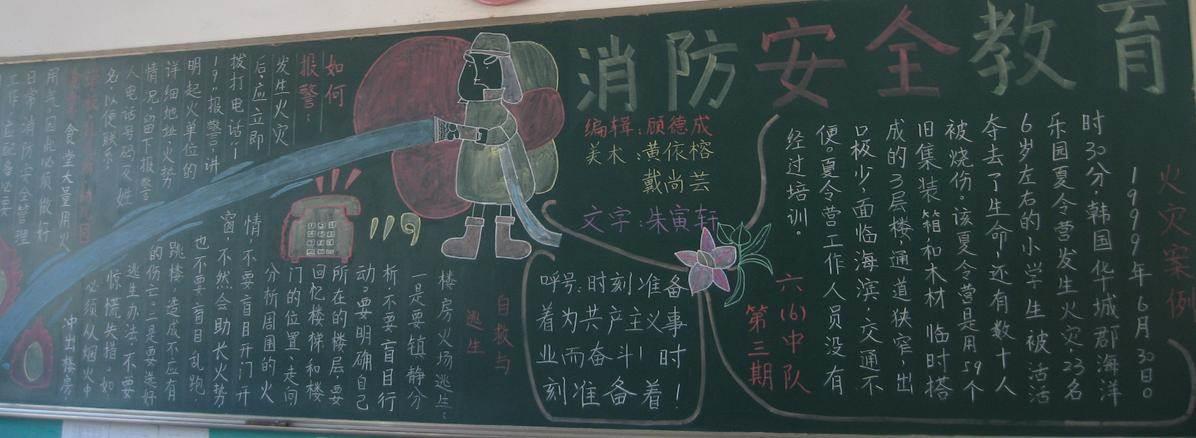 消防安全教育
编辑:顾德成
美术:黄依榕
戴尚芸
文字:朱寅轩
火灾案例
1999年6月30日0
时30分,韩国华城郡海洋
乐园夏令营发生火灾,23名
6岁左右的小学生被活活
夺去了生命,还有数十人
被烧伤。该夏令营是用59个
旧集装箱和木材临时搭
成的3层楼,通道狭窄,出
口极少,面临海滨,交通不
便。夏令营工作人员没有
经过培训。
六(6)中队
第三期
呼号:时刻准备
着为共产主义事
业而奋斗!时
刻准备着!
如何
报警:
发生火灾
后,应立即
拨打电话"1
19"报警,讲
明起火单位的
详细地址,火势
情况,留下报警
人电话号码及姓
名,以便联系。
119
自救与
逃生
楼房火场逃生:
一是要镇静分
析,不要盲目行
动。要明确自己
所在的楼层,要
回忆楼梯和楼
门的位置、走向
分析周围的火
情,不要盲目开门开
窗,不然会助长火势
也不要盲目乱跑
跳楼,造成不应有
的伤亡;二是要选好
逃生办法,不要
惊慌失措。如
必须从烟火中
冲出楼房
食堂大量用火
用气,因此必须做好
日常消防安全管理
工作